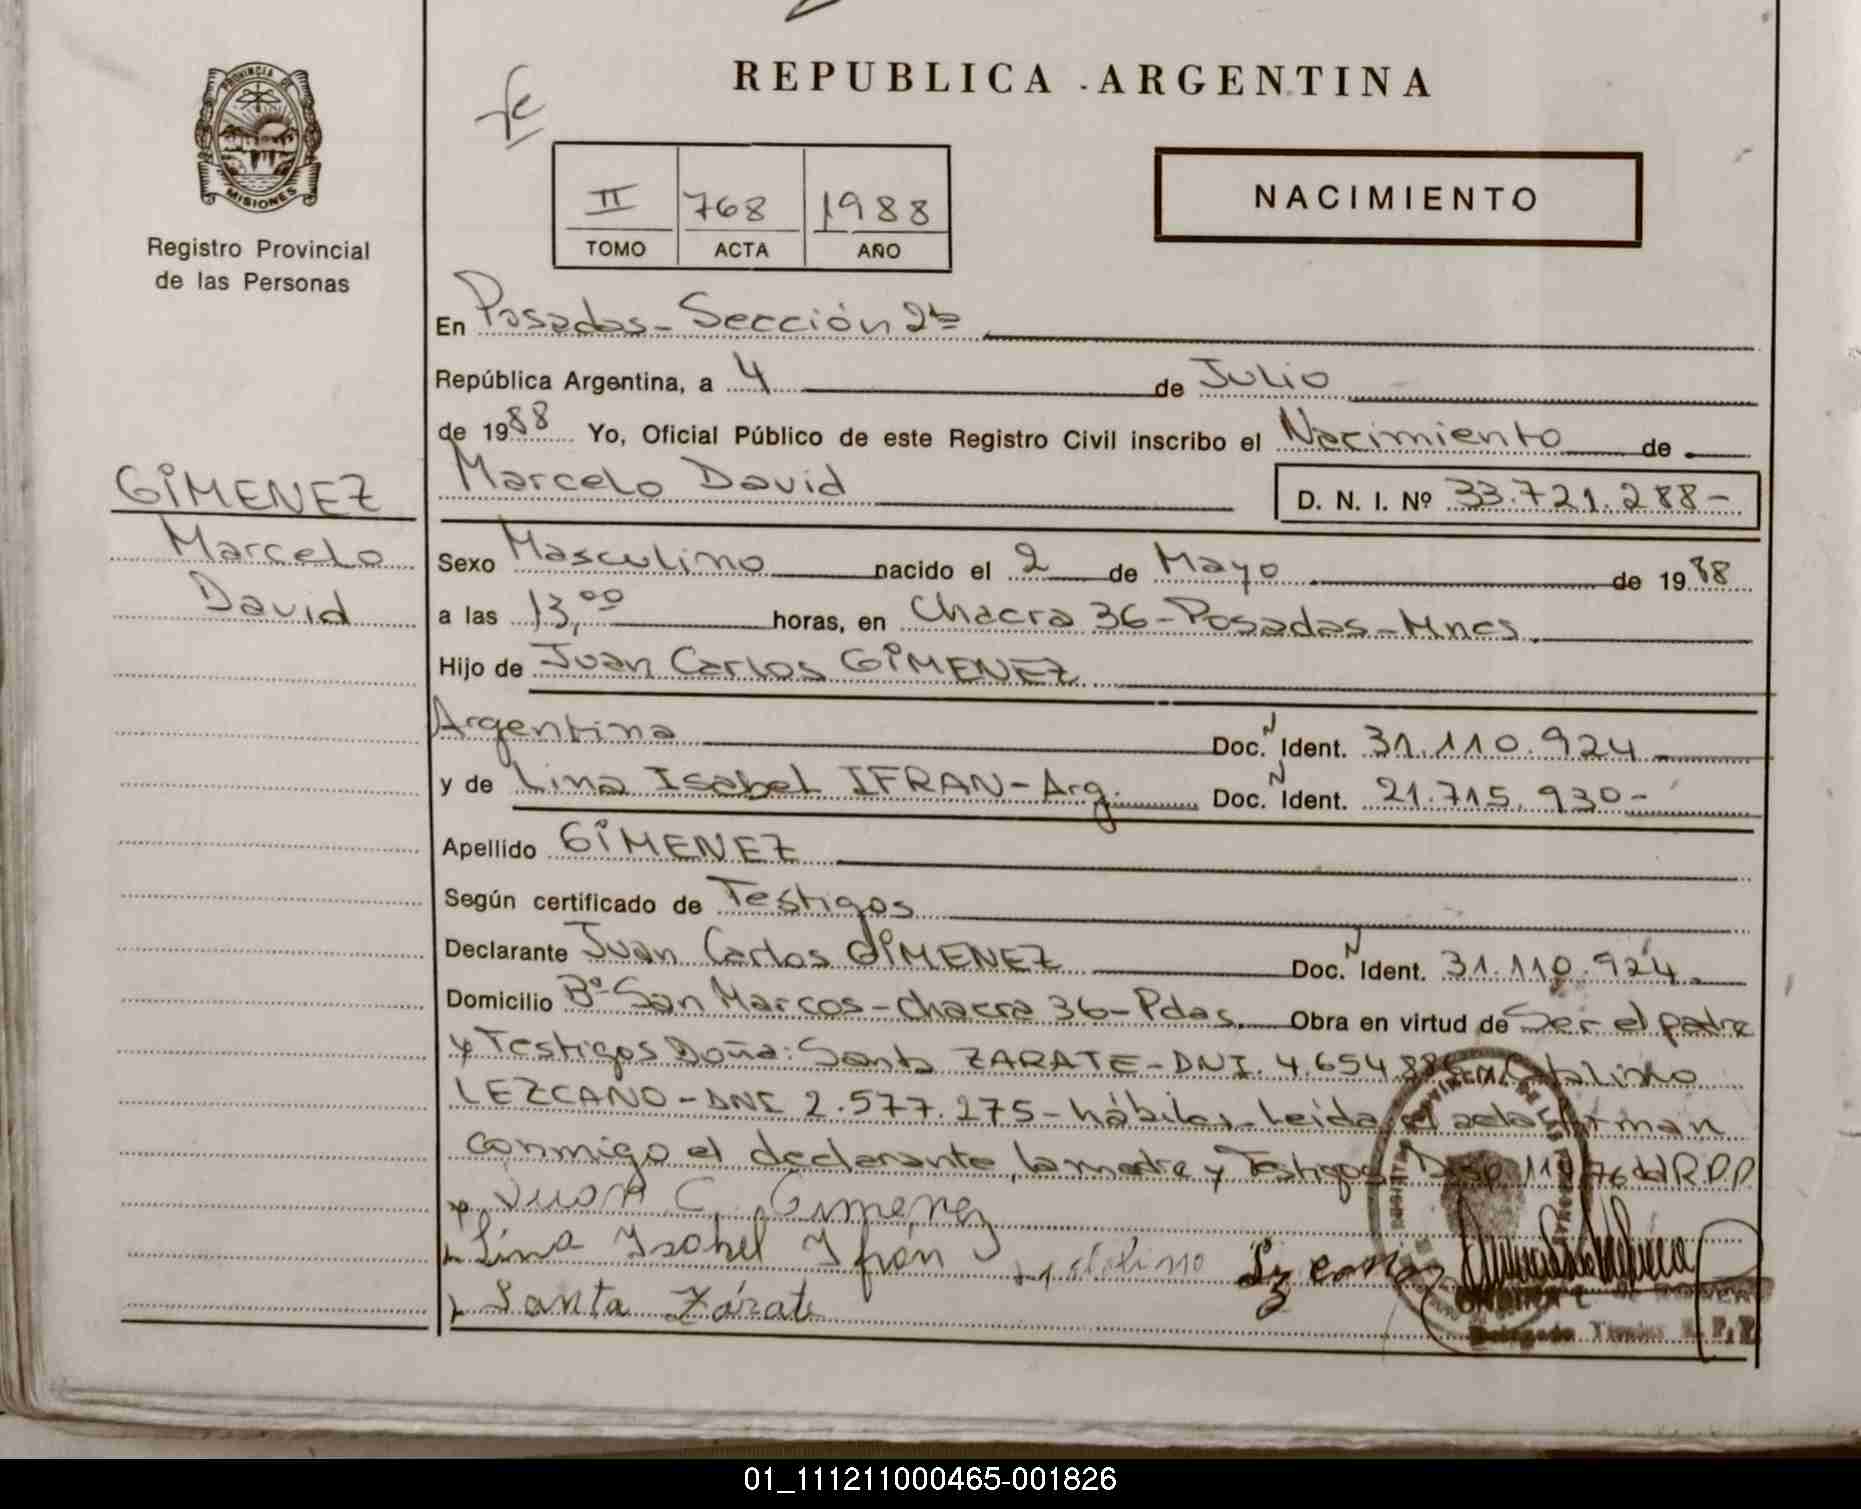 PROVINCIA DE
MISIONES
Registro Provincial
de las Personas
REPUBLICA ARGENTINA
II 768 1988
TOMO ACTA AÑO
NACIMIENTO
En Posadas - Sección 2ª
República Argentina, a 4 de Julio
de 1988 Yo, Oficial Público de este Registro Civil inscribo el Nacimiento de
Marcelo David D. N. I. Nº 33.721.288-
GIMENEZ
Marcelo
David
Sexo Masculino nacido el 2 de Mayo de 1988
a las 13,00 horas, en Chacra 36-Posadas-Mnes.
Hijo de Juan Carlos GIMENEZ
Argentina Doc. N Ident. 31.110.924
y de Lina Isabel IFRAN-Arg. Doc. N Ident. 21.715.930-
Apellido GIMENEZ
Según certificado de Testigos
Declarante Juan Carlos GIMENEZ Doc. N Ident. 31.110.924
Domicilio Bº San Marcos-chacra 36-Pdas. Obra en virtud de Ser el padre
y Testigos Doña: Santa ZARATE-DNI. 4.654
LEZCANO-DNI 2.577.275-hábiles-leida el acta firman
conmigo el declarante, la madre y Testigos Disp. 11/76 dd R.P.P
Juan C. Gimenez
Lina Isabel Ifrán
Santa Zárate
01_111211000465-001826